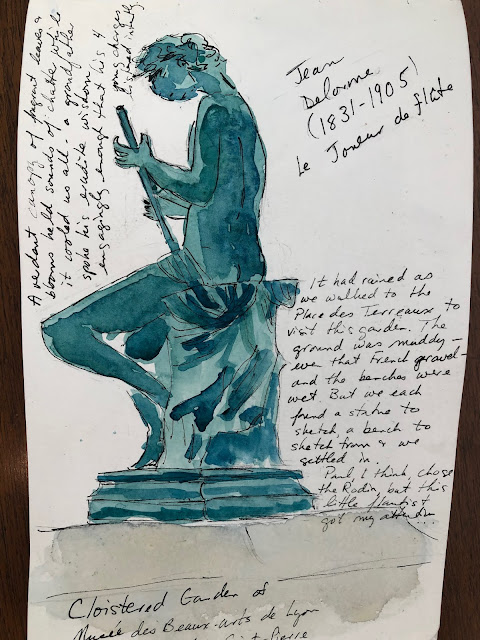 A verdant canopy of fragrant leaves &
blooms held sounds of chatter while
it cooled us all - a grandfather
spoke his erudite wisdom
engagingly enough that his 4
young charges
listened intently
Jean
Delorme
(1831-1905)
Le Joueur de flûte
It had rained as
we walked to the
Place des Terreaux to
visit this garden. The
ground was muddy -
even that French gravel -
and the benches were
wet. But we each
found a statue to
sketch a bench to
sketch from & we
settled in.
Paul, I think chose
the Rodin, but this
little flautist
got my attention...
Cloistered Garden of
Musée des Beaux-arts de Lyon
Saint-Pierre